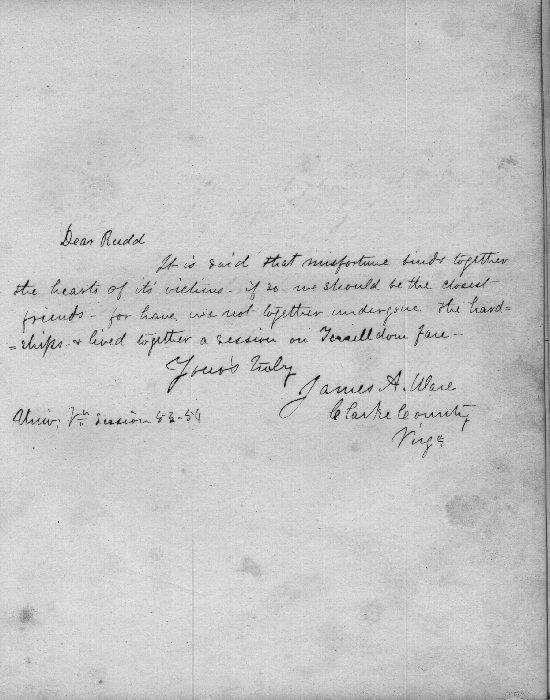 Dear Rudd
It is said that misfortune binds together
the hearts of its victims - if so we should be the closest
friends - for have we not together undergone the hard=
=ships & lived together a session on Terrelldom fare -
Your's truly
James A. Ware
Clarke County
Virga
Univ. Va session 53-54